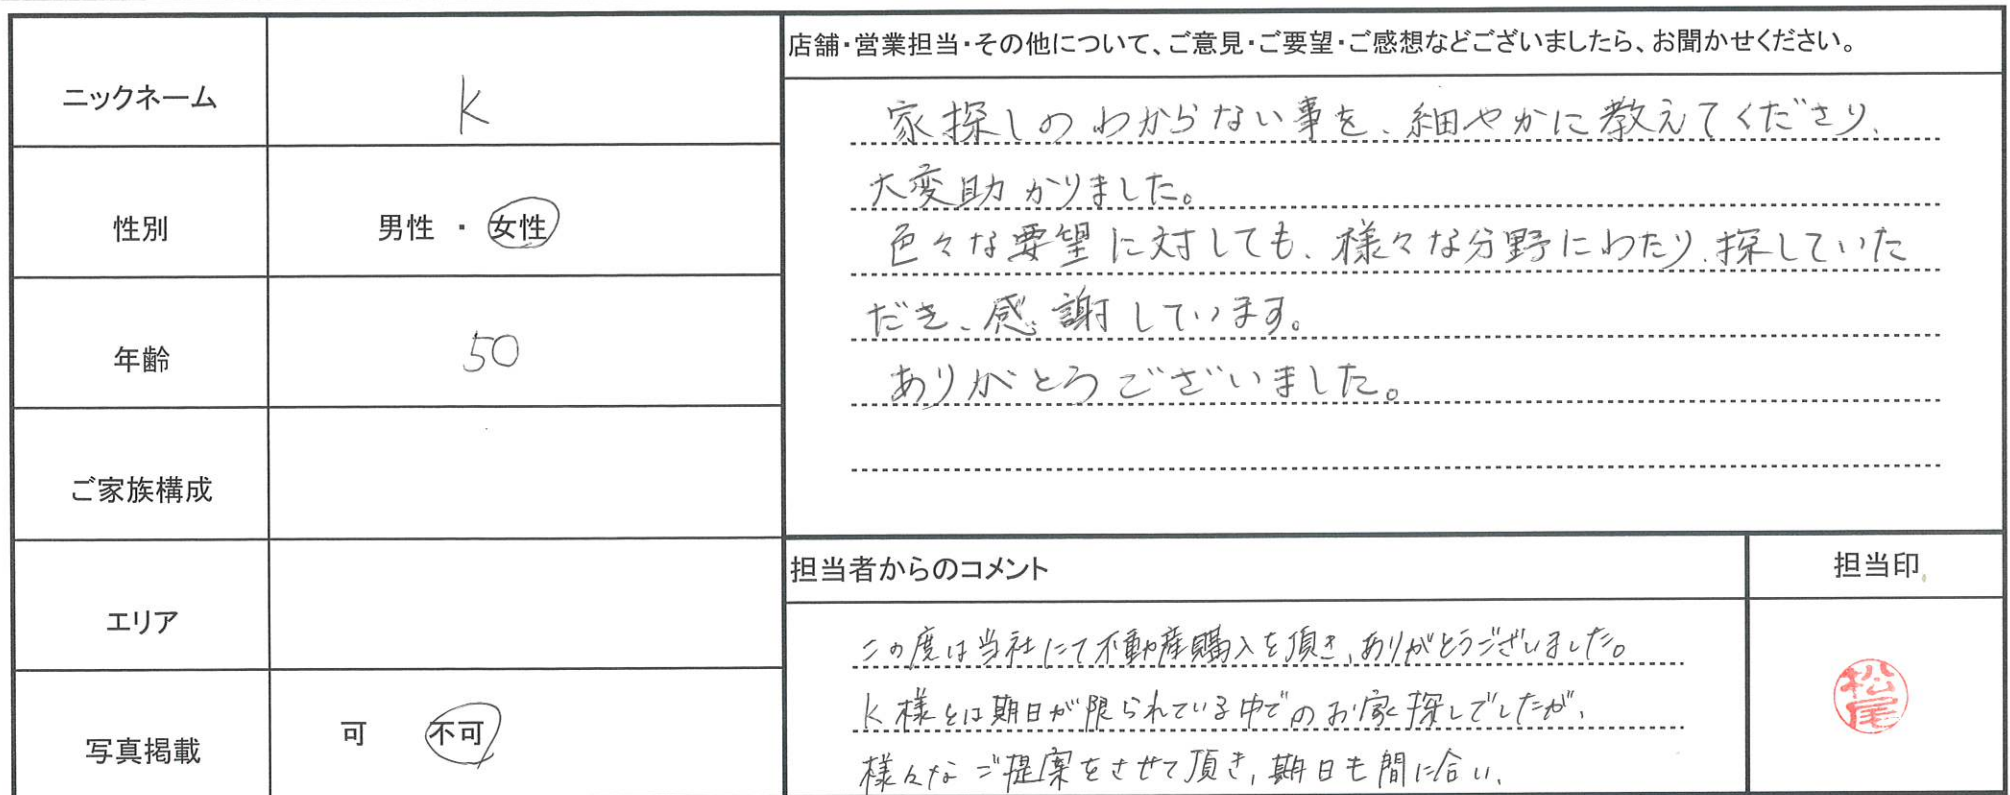 ニックネーム
K
性別
男性 ・ 女性
年齢
50
ご家族構成
エリア
写真掲載
可 不可
店舗・営業担当・その他について、ご意見・ご要望・ご感想などございましたら、お聞かせください。
家探しのわからない事を、細やかに教えてくださり、
大変助かりました。
色々な要望に対しても、様々な分野にわたり、探していた
だき、感謝しています。
ありがとうございました。
担当者からのコメント
この度は当社にて不動産購入を頂き、ありがとうございました。
K様とは期日が限られている中でのお家探しでしたが、
様々なご提案をさせて頂き、期日も間に合い、
担当印
松尾